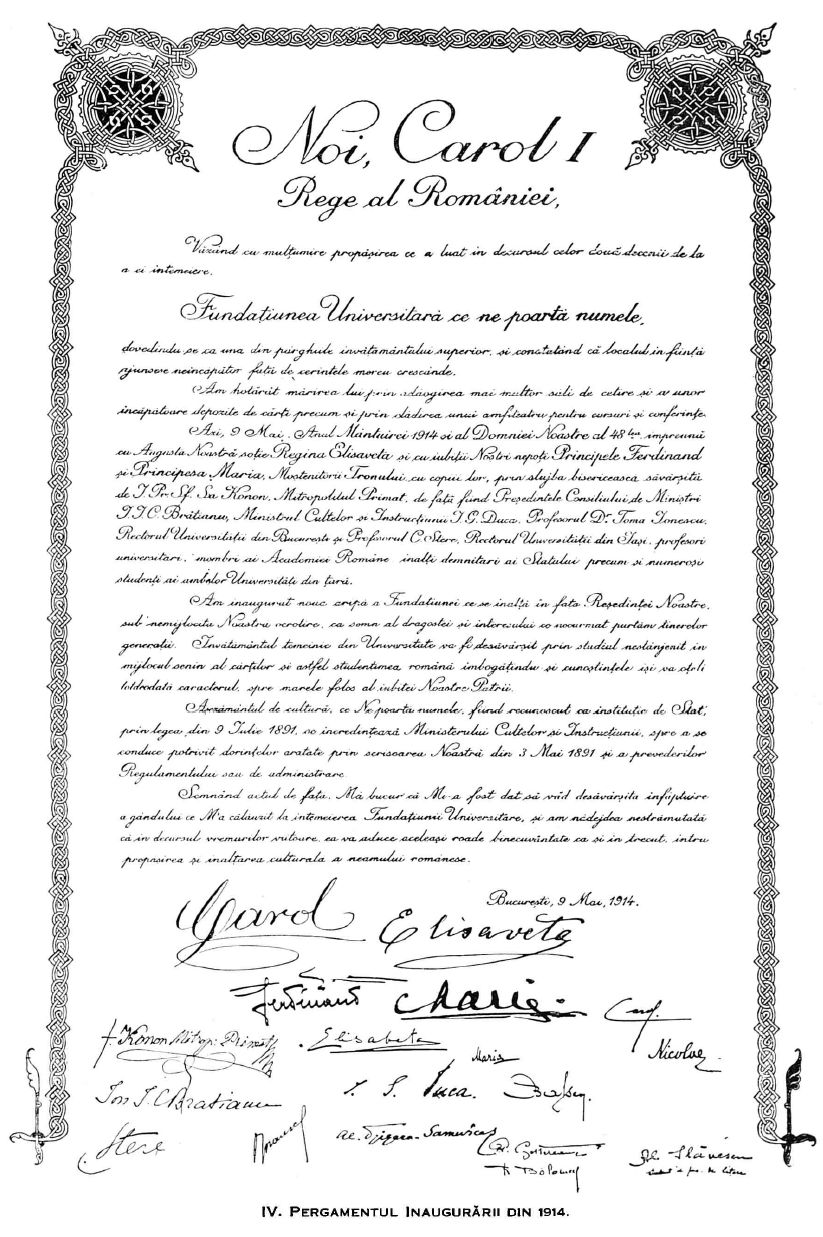 Noi, Carol I
Rege al României,
Văzând cu mulțumire propășirea ce a luat in decursul celor două decenii de la
a ei intemeiere.
Fundațiunea Universitară ce ne poartă numele,
dovedindu se ca una din pârghiile invătământului superior, si constatând că localul in ființă
ajunsese neincăpător fată de cerintele mereu crescânde.
Am hotărât mărirea lui prin adăogirea mai multor săli de cetire si a unor
incăpătoare depozite de cărti precum si prin cladirea unui amfiteatru pentru cursuri si conferințe.
Azi, 9 Mai, Anul Mântuirei 1914 si al Domniei Noastre al 48 lea impreună
cu Augusta Noastră soție Regina Elisaveta si cu iubiții Noștri nepoți Principele Ferdinand
și Principesa Maria, Mostenitorii Tronului cu copiii lor, prin slujba bisericeasca săvârșită
de I. Pr. Sf. Sa Konon, Mitropolitul Primat, de față fiind Președintele Consiliului de Miniștri
I. I. C. Brătianu, Ministrul Cultelor și Instrucțiunii I. G. Duca, Profesorul Dr. Toma Ionescu,
Rectorul Universitații din București și Profesorul C. Stere, Rectorul Universității din Iași, profesori
universitari, membri ai Academiei Române inalți demnitari ai Statului precum si numeroși
studenți ai ambelor Universităti din țară.
Am inaugurat noua aripă a Fundatiunei ce se inalță în fata Reședinței Noastre,
sub nemijlocita Noastra ocrotire, ca semn al dragostei si interesului ce necurmat purtăm tinerelor
generații. Invătământul temeinic din Universitate va fi desăvârșit prin studiul nestânjenit in
mijlocul senin al cărților si astfel studentimea română imbogățindu și cunoștințele isi va oțeli
totdeodată caracterul, spre marele folos al iubitei Noastre Patrii.
Asezământul de cultură, ce Ne poarta numele, fiind recunoscut ca instituție de Stat,
prin legea din 9 Iulie 1891, se incredințează Ministerului Cultelor si Instrucțiunii, spre a se
conduce potrivit dorințelor aratate prin scrisoarea Noastră din 3 Mai 1891 și a prevederilor
Regulamentului sau de administrare.
Semnând actul de fața, Mă bucur că Mi-a fost dat să văd desăvârșita infăptuire
a gândului ce M'a călauzit la intemeierea Fundațiunii Universitare, și am nădejdea nestrămutată
că in decursul vremurilor viitoare, ea va aduce aceleași roade binecuvântate ca si in trecut, intru
propășirea și inaltarea culturala a neamului românesc.
București, 9 Mai, 1914.
Carol
Elisaveta
Ferdinand
Maria
Carol
† Konon Mitrop: Primat
Elisabeta
Maria
Nicolae
Ion I. C. Bratianu
I. G. Duca.
Stere
Al. Tzigara-Samurcaș
IV. PERGAMENTUL INAUGURĂRII DIN 1914.